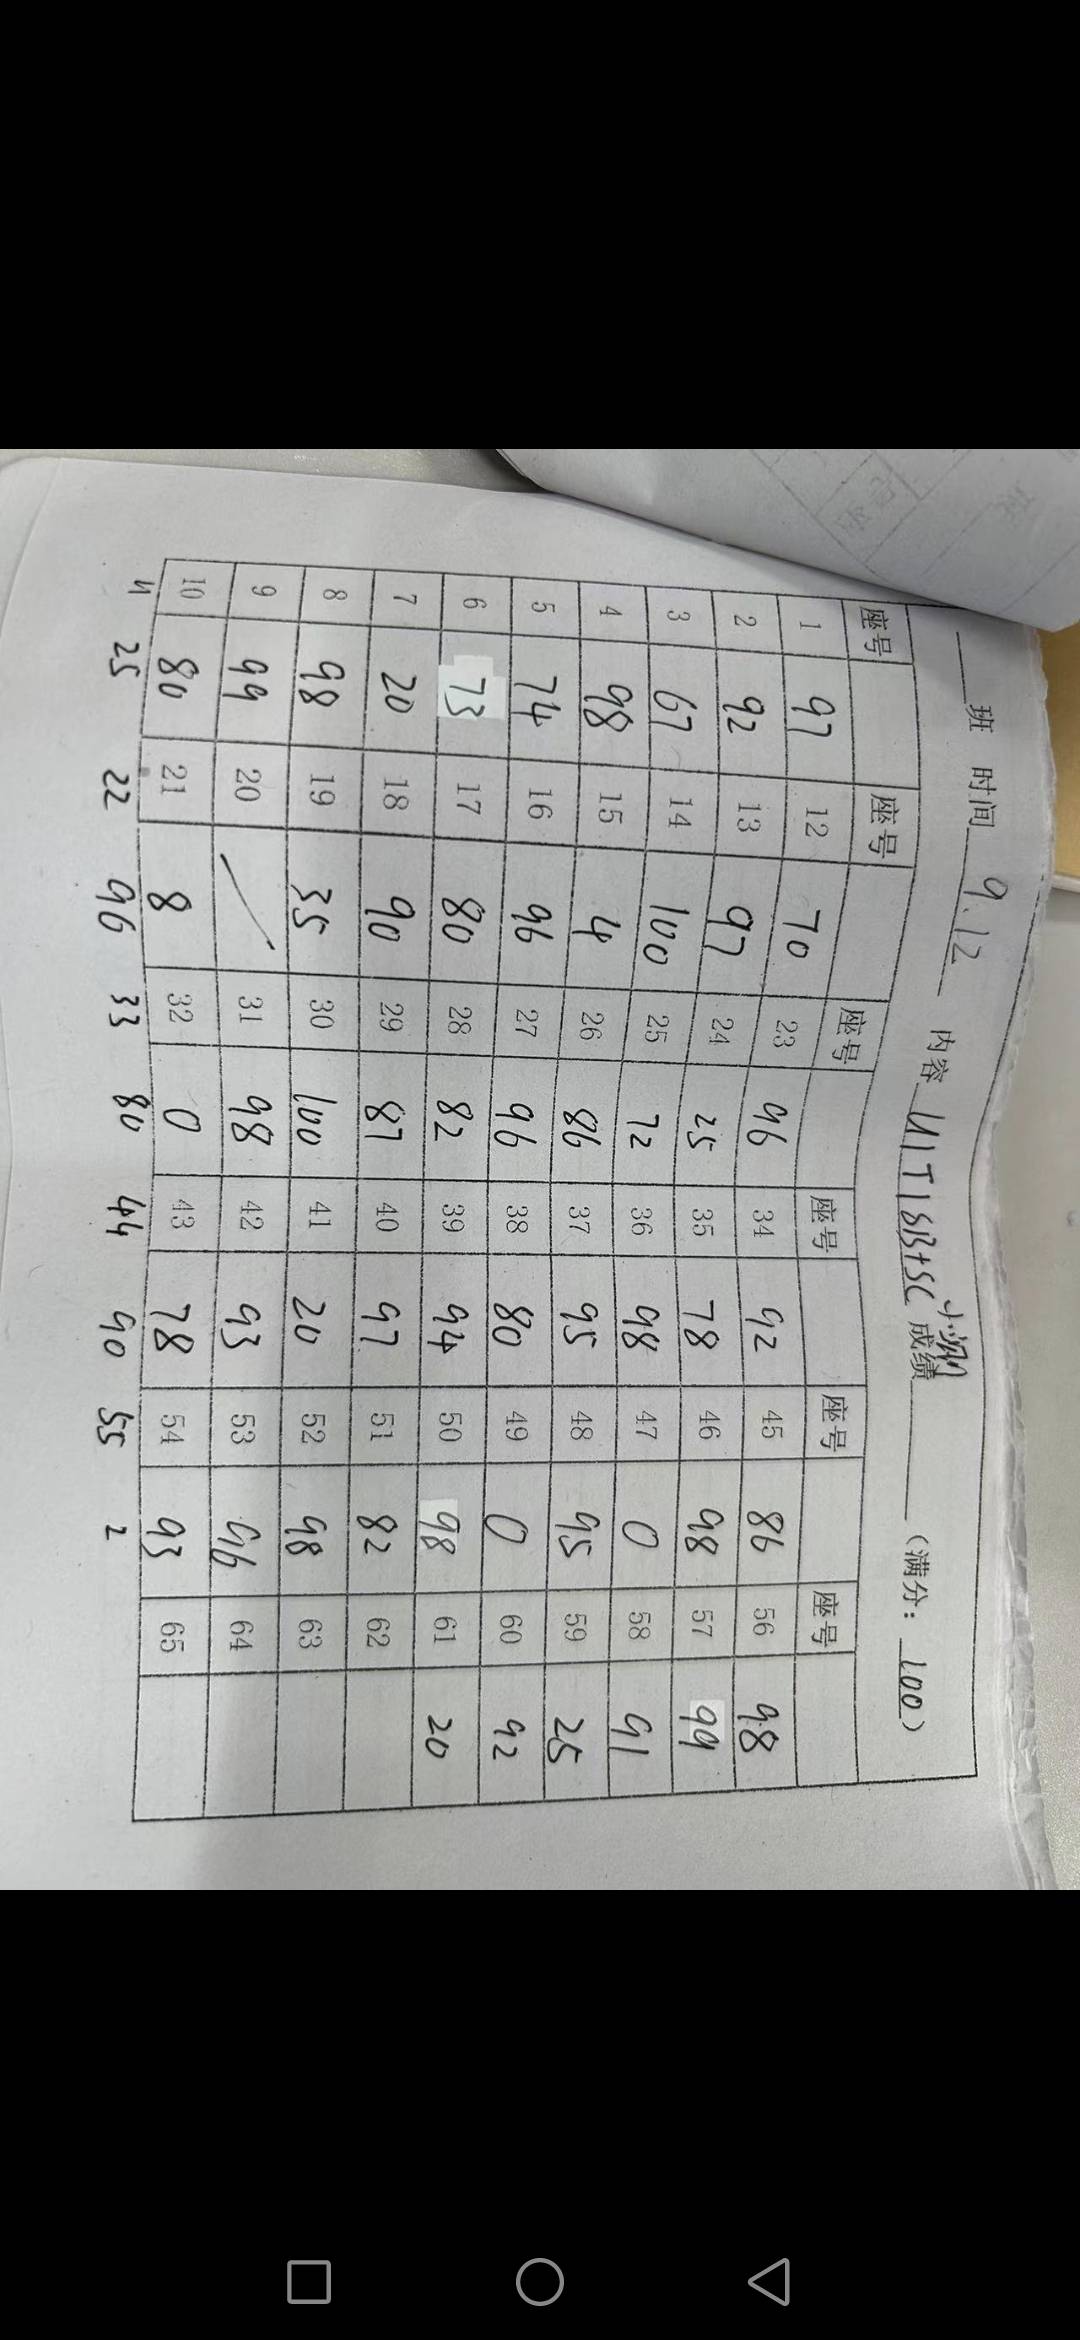 班 时间 9.12 内容 U1T1SB+SC 小测 成绩 (满分: 100)
座号 座号 座号 座号 座号 座号
1 97 12 70 23 96 34 92 45 86 56 98
2 92 13 97 24 25 35 78 46 98 57 99
3 67 14 100 25 72 36 98 47 0 58 91
4 98 15 4 26 86 37 95 48 95 59 25
5 74 16 96 27 96 38 80 49 0 60 92
6 73 17 80 28 82 39 94 50 98 61 20
7 20 18 90 29 87 40 97 51 82 62
8 98 19 35 30 100 41 20 52 98 63
9 99 20 31 98 42 93 53 96 64
10 80 21 8 32 0 43 78 54 93 65
11 25 22 96 33 80 44 90 55 2